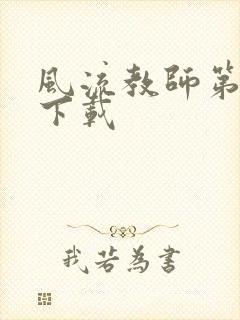 風流教師第
下載
我若為書